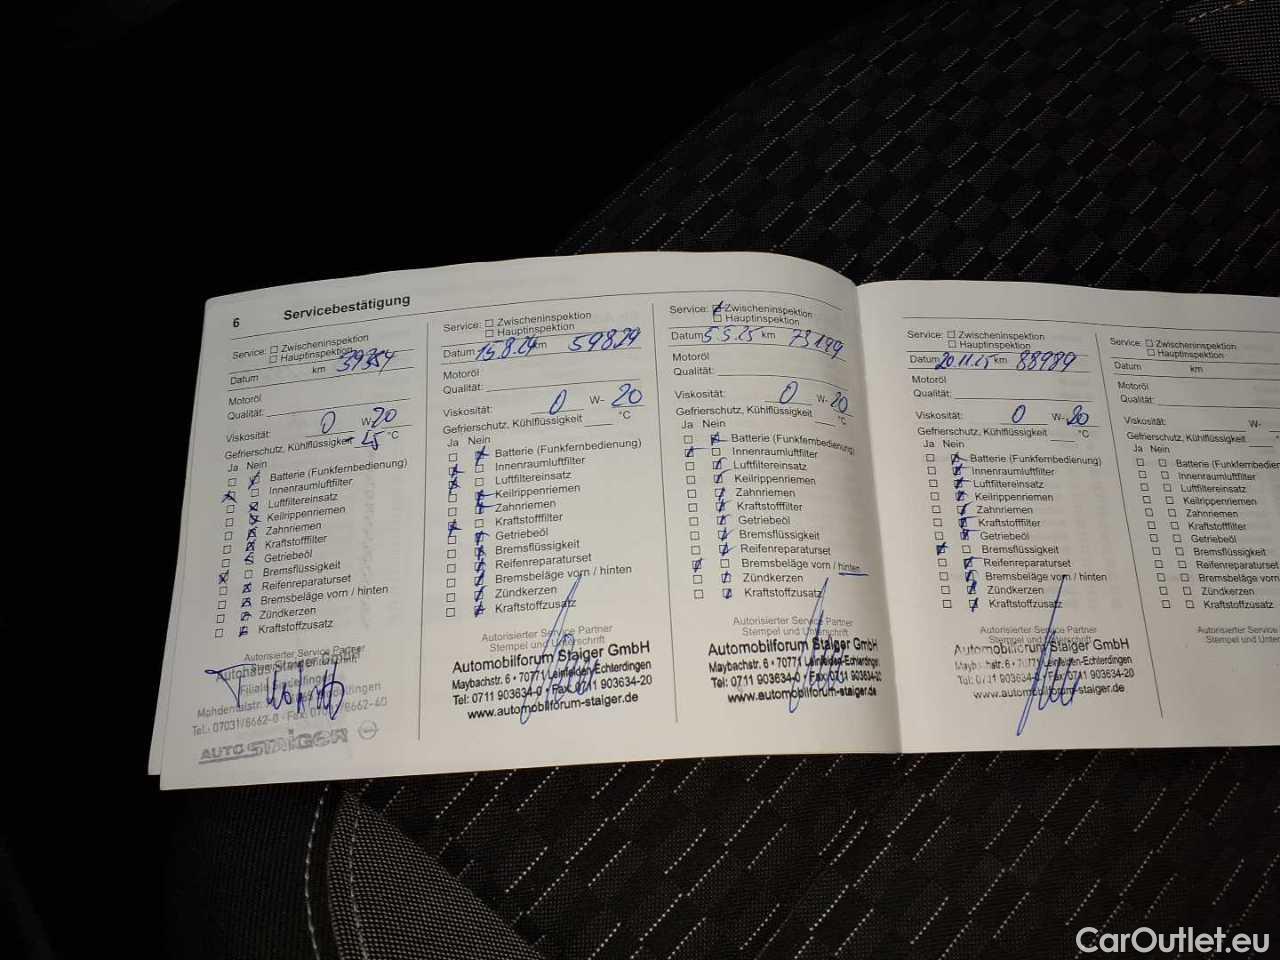 6 Servicebestätigung
Service: Zwischeninspektion
Hauptinspektion
Datum km 39354
Motoröl
Qualität:
Viskosität: 0 W- 20
Gefrierschutz, Kühlflüssigkeit °C
Ja Nein
Batterie (Funkfernbedienung)
Innenraumluftfilter
Luftfiltereinsatz
Keilrippenriemen
Zahnriemen
Kraftstofffilter
Getriebeöl
Bremsflüssigkeit
Reifenreparaturset
Bremsbeläge vorn / hinten
Zündkerzen
Kraftstoffzusatz
Autorisierter Service Partner
Autohaus Staiger GmbH
Filiale Sindelfingen
Tel.: 07031/8662-0 • Fax: 07031/8662-40
AUTO STAIGER
Service: Zwischeninspektion
Hauptinspektion
Datum 15.8.24 km 59829
Motoröl
Qualität:
Viskosität: 0 W- 20
Gefrierschutz, Kühlflüssigkeit °C
Ja Nein
Batterie (Funkfernbedienung)
Innenraumluftfilter
Luftfiltereinsatz
Keilrippenriemen
Zahnriemen
Kraftstofffilter
Getriebeöl
Bremsflüssigkeit
Reifenreparaturset
Bremsbeläge vorn / hinten
Zündkerzen
Kraftstoffzusatz
Autorisierter Service Partner
Stempel und Unterschrift
Automobilforum Staiger GmbH
Maybachstr. 6 • 70771 Leinfelden-Echterdingen
Tel: 0711 903634-0 • Fax: 0711 903634-20
www.automobilforum-staiger.de
Service: Zwischeninspektion
Hauptinspektion
Datum 5.5.25 km 73199
Motoröl
Qualität:
Viskosität: 0 W- 20
Gefrierschutz, Kühlflüssigkeit °C
Ja Nein
Batterie (Funkfernbedienung)
Innenraumluftfilter
Luftfiltereinsatz
Keilrippenriemen
Zahnriemen
Kraftstofffilter
Getriebeöl
Bremsflüssigkeit
Reifenreparaturset
Bremsbeläge vorn / hinten
Zündkerzen
Kraftstoffzusatz
Autorisierter Service Partner
Stempel und Unterschrift
Automobilforum Staiger GmbH
Maybachstr. 6 • 70771 Leinfelden-Echterdingen
Tel: 0711 903634-0 • Fax: 0711 903634-20
www.automobilforum-staiger.de
Service: Zwischeninspektion
Hauptinspektion
Datum 20.11.25 km 88989
Motoröl
Qualität:
Viskosität: 0 W- 20
Gefrierschutz, Kühlflüssigkeit °C
Ja Nein
Batterie (Funkfernbedienung)
Innenraumluftfilter
Luftfiltereinsatz
Keilrippenriemen
Zahnriemen
Kraftstofffilter
Getriebeöl
Bremsflüssigkeit
Reifenreparaturset
Bremsbeläge vorn / hinten
Zündkerzen
Kraftstoffzusatz
Autorisierter Service Partner
Stempel und Unterschrift
Automobilforum Staiger GmbH
Maybachstr. 6 • 70771 Leinfelden-Echterdingen
Tel: 0711 903634-0 • Fax: 0711 903634-20
www.automobilforum-staiger.de
Service: Zwischeninspektion
Hauptinspektion
Datum km
Motoröl
Qualität:
Viskosität: W-
Gefrierschutz, Kühlflüssigkeit °C
Ja Nein
Batterie (Funkfernbedienung
Innenraumluftfilter
Luftfiltereinsatz
Keilrippenriemen
Zahnriemen
Kraftstofffilter
Getriebeöl
Bremsflüssigkeit
Reifenreparaturset
Bremsbeläge vorn
Zündkerzen
Kraftstoffzusatz
Autorisierter Service
Stempel und Unter
CarOutlet.eu